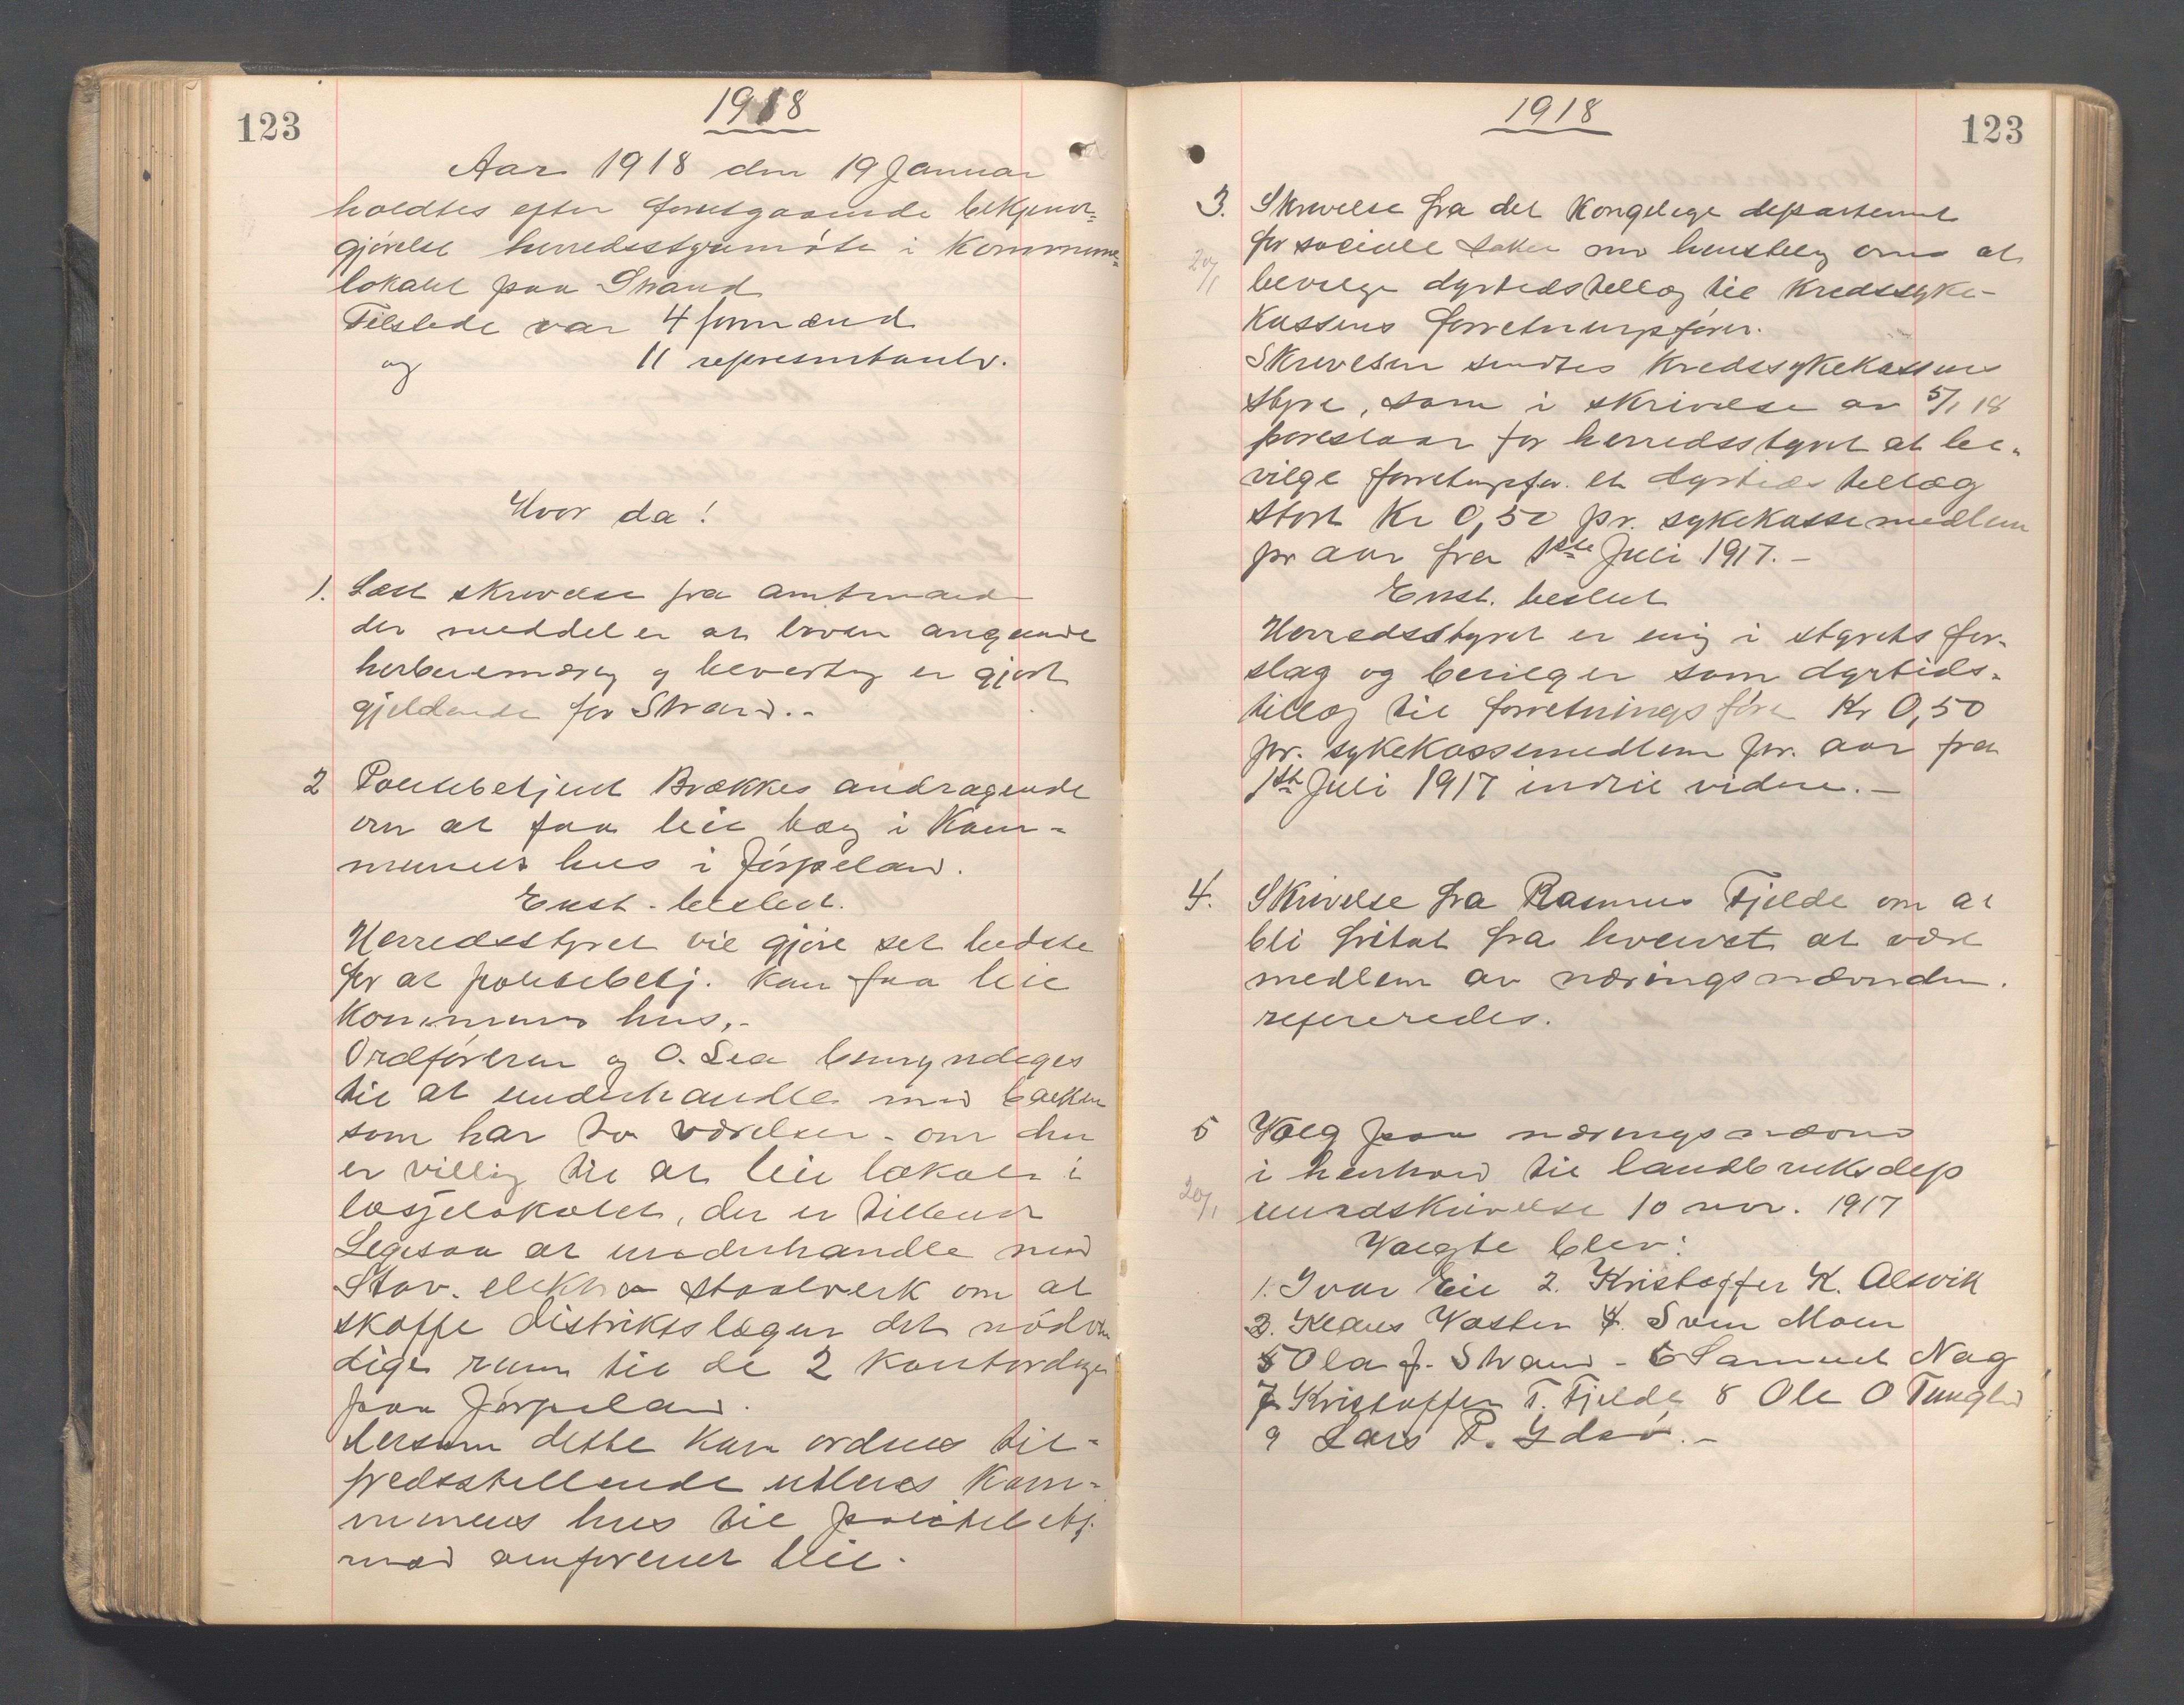 123
1918
Aar 1918 den 19 Januar
holdtes efter forutgaaende bekjendt-
gjörelse herredsstyremöte i Kommune-
lokalet paa Strand
Tilstede var 4 formænd
og 11 representanter.
Hvor da!
1. Læst skrivelse fra amtmand
der meddeler at loven angaaende
herberenæring og bevertng er gjort
gjeldende for Strand.-
2 Politibetjent Brækkes andragende
om at faa leie i Kom-
munens hus i Jörpeland.
Enst. beslut.
Herredsstyret vil gjöre set bedste
for at politibetj. kan faa leie
Kommunens hus.-
Ordföreren og O. Lea bemyndeges
til at underhandle med banken
som har to værelser - om den
er villig til at leie lokale i
losjelokalet, der er tilbudt
Ligesaa at underhandle med
Stav. elektro staalverk om at
skaffe distriktslægen det nödven
dige rum til de 2 kontordage
paa Jörpeland.
dersom dette kan ordnes til-
fredsstillende utleies Kom-
munens hus til politibetj.
mod omforenet leie.
1918
123
3. Skrivelse fra det Kongelige departement
for sociale saker om henstellg om at
20/1
bevilge dyrtidstillæg til Kredssyke-
Kassens forretningsförer.
Skrivelsen sendtes Kredssykekassens
styre, som i skrivelse av 5/1 18
foreslaar for herredsstyret at be-
vilge forretngsför. et dyrtids tillæg
stort Kr 0,50 pr. sykekassemedlem
pr aar fra 1ste Juli 1917.-
Enst. beslut
Herredsstyret er enig i styrets for-
slag og bevilger som dyrtids-
tillæg til forretningsförer Kr 0,50
pr. sykekassemedlem pr. aar fra
1ste Juli 1917 indtil videre.-
4. Skrivelse fra Rasmus Fjelde om at
bli fritat fra hvervet at være
medlem av næringsnævnden.
refereredes.
5 Valg paa næringsnævnd
i henhold til landbruksdep
20/1
rundskrivelse 10 nov. 1917
Valgte blev:
1. Ivar Eie 2. Kristoffer K. Alsvik
3. Klaus Vaster 4. Sven Moen
5 Ola J. Strand - 6 Samuel Nag
7 Kristoffer T. Fjelde 8 Ole O Tungland
9 Lars P. Idsö.-